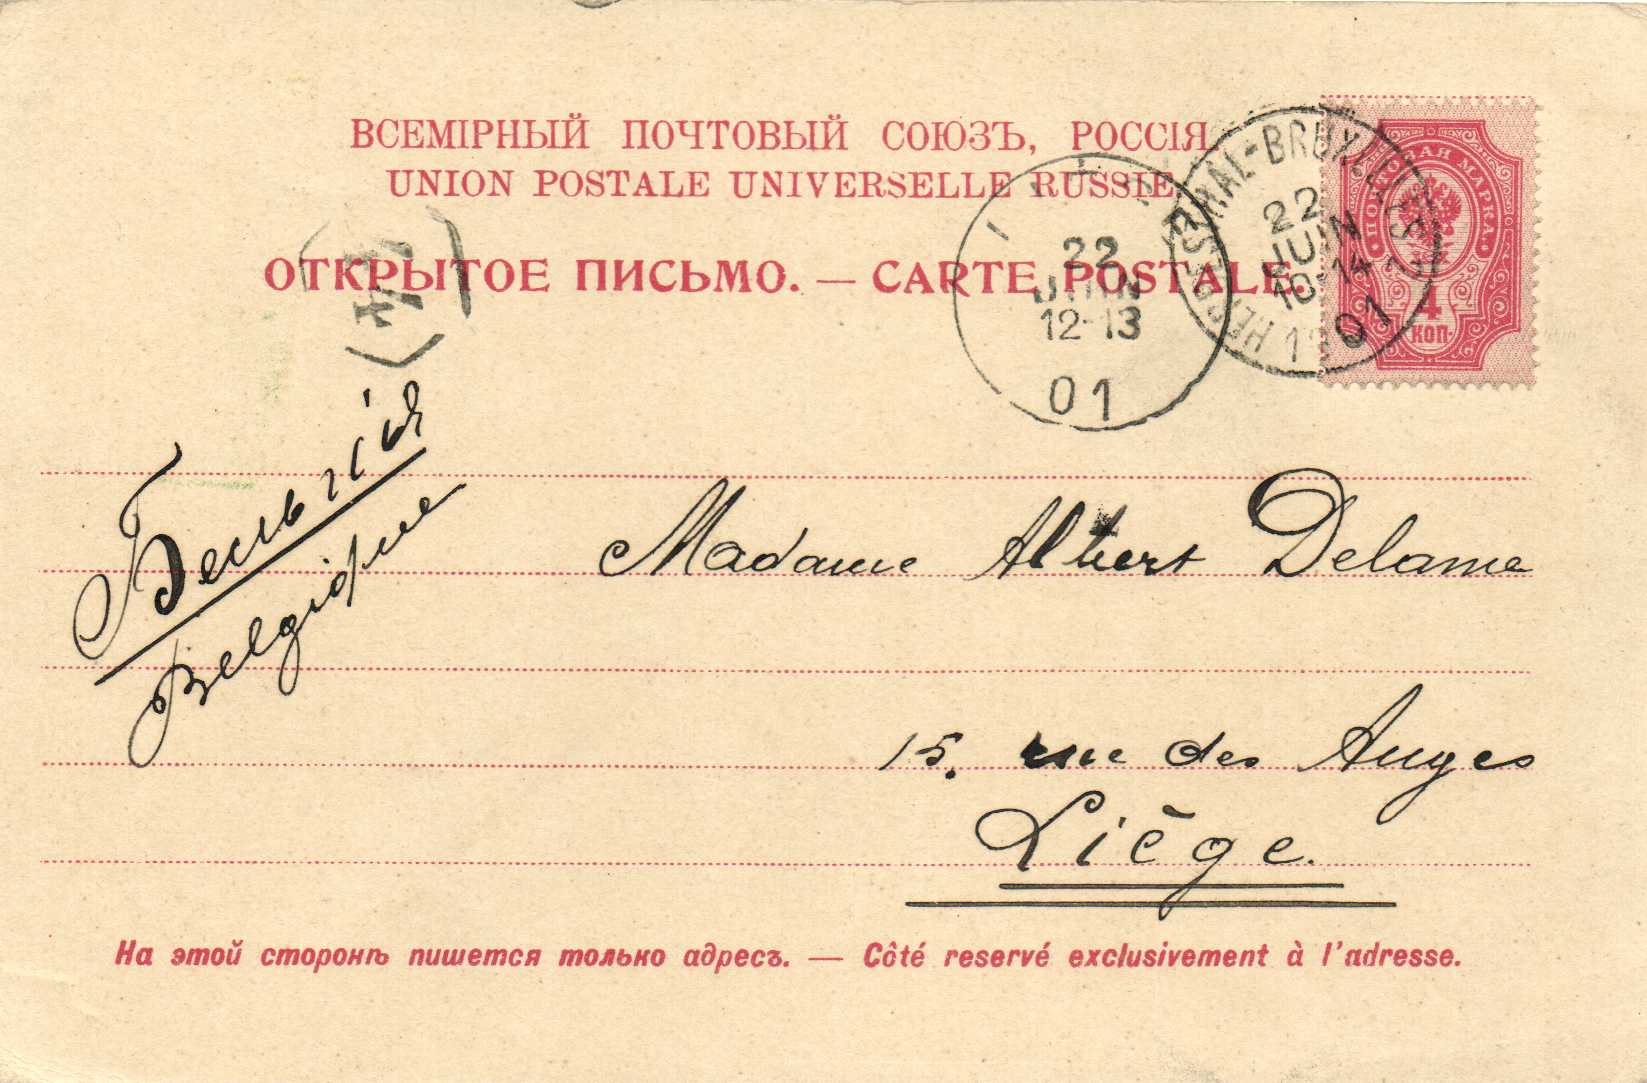 ВСЕМІРНЫЙ ПОЧТОВЫЙ СОЮЗЪ, РОССІЯ
UNION POSTALE UNIVERSELLE RUSSIE
ОТКРЫТОЕ ПИСЬМО. — CARTE POSTALE.
22
JUIN
12-13
01
HERBESTHAL-BRUXELLES 2
22
JUIN
10-14
1901
ПОЧТОВАЯ МАРКА
4
КОП.
Бельгія
Belgique
Madame Albert Delame
15. rue des Anges
Liège.
На этой сторонѣ пишется только адресъ. — Côté reservé exclusivement à l'adresse.